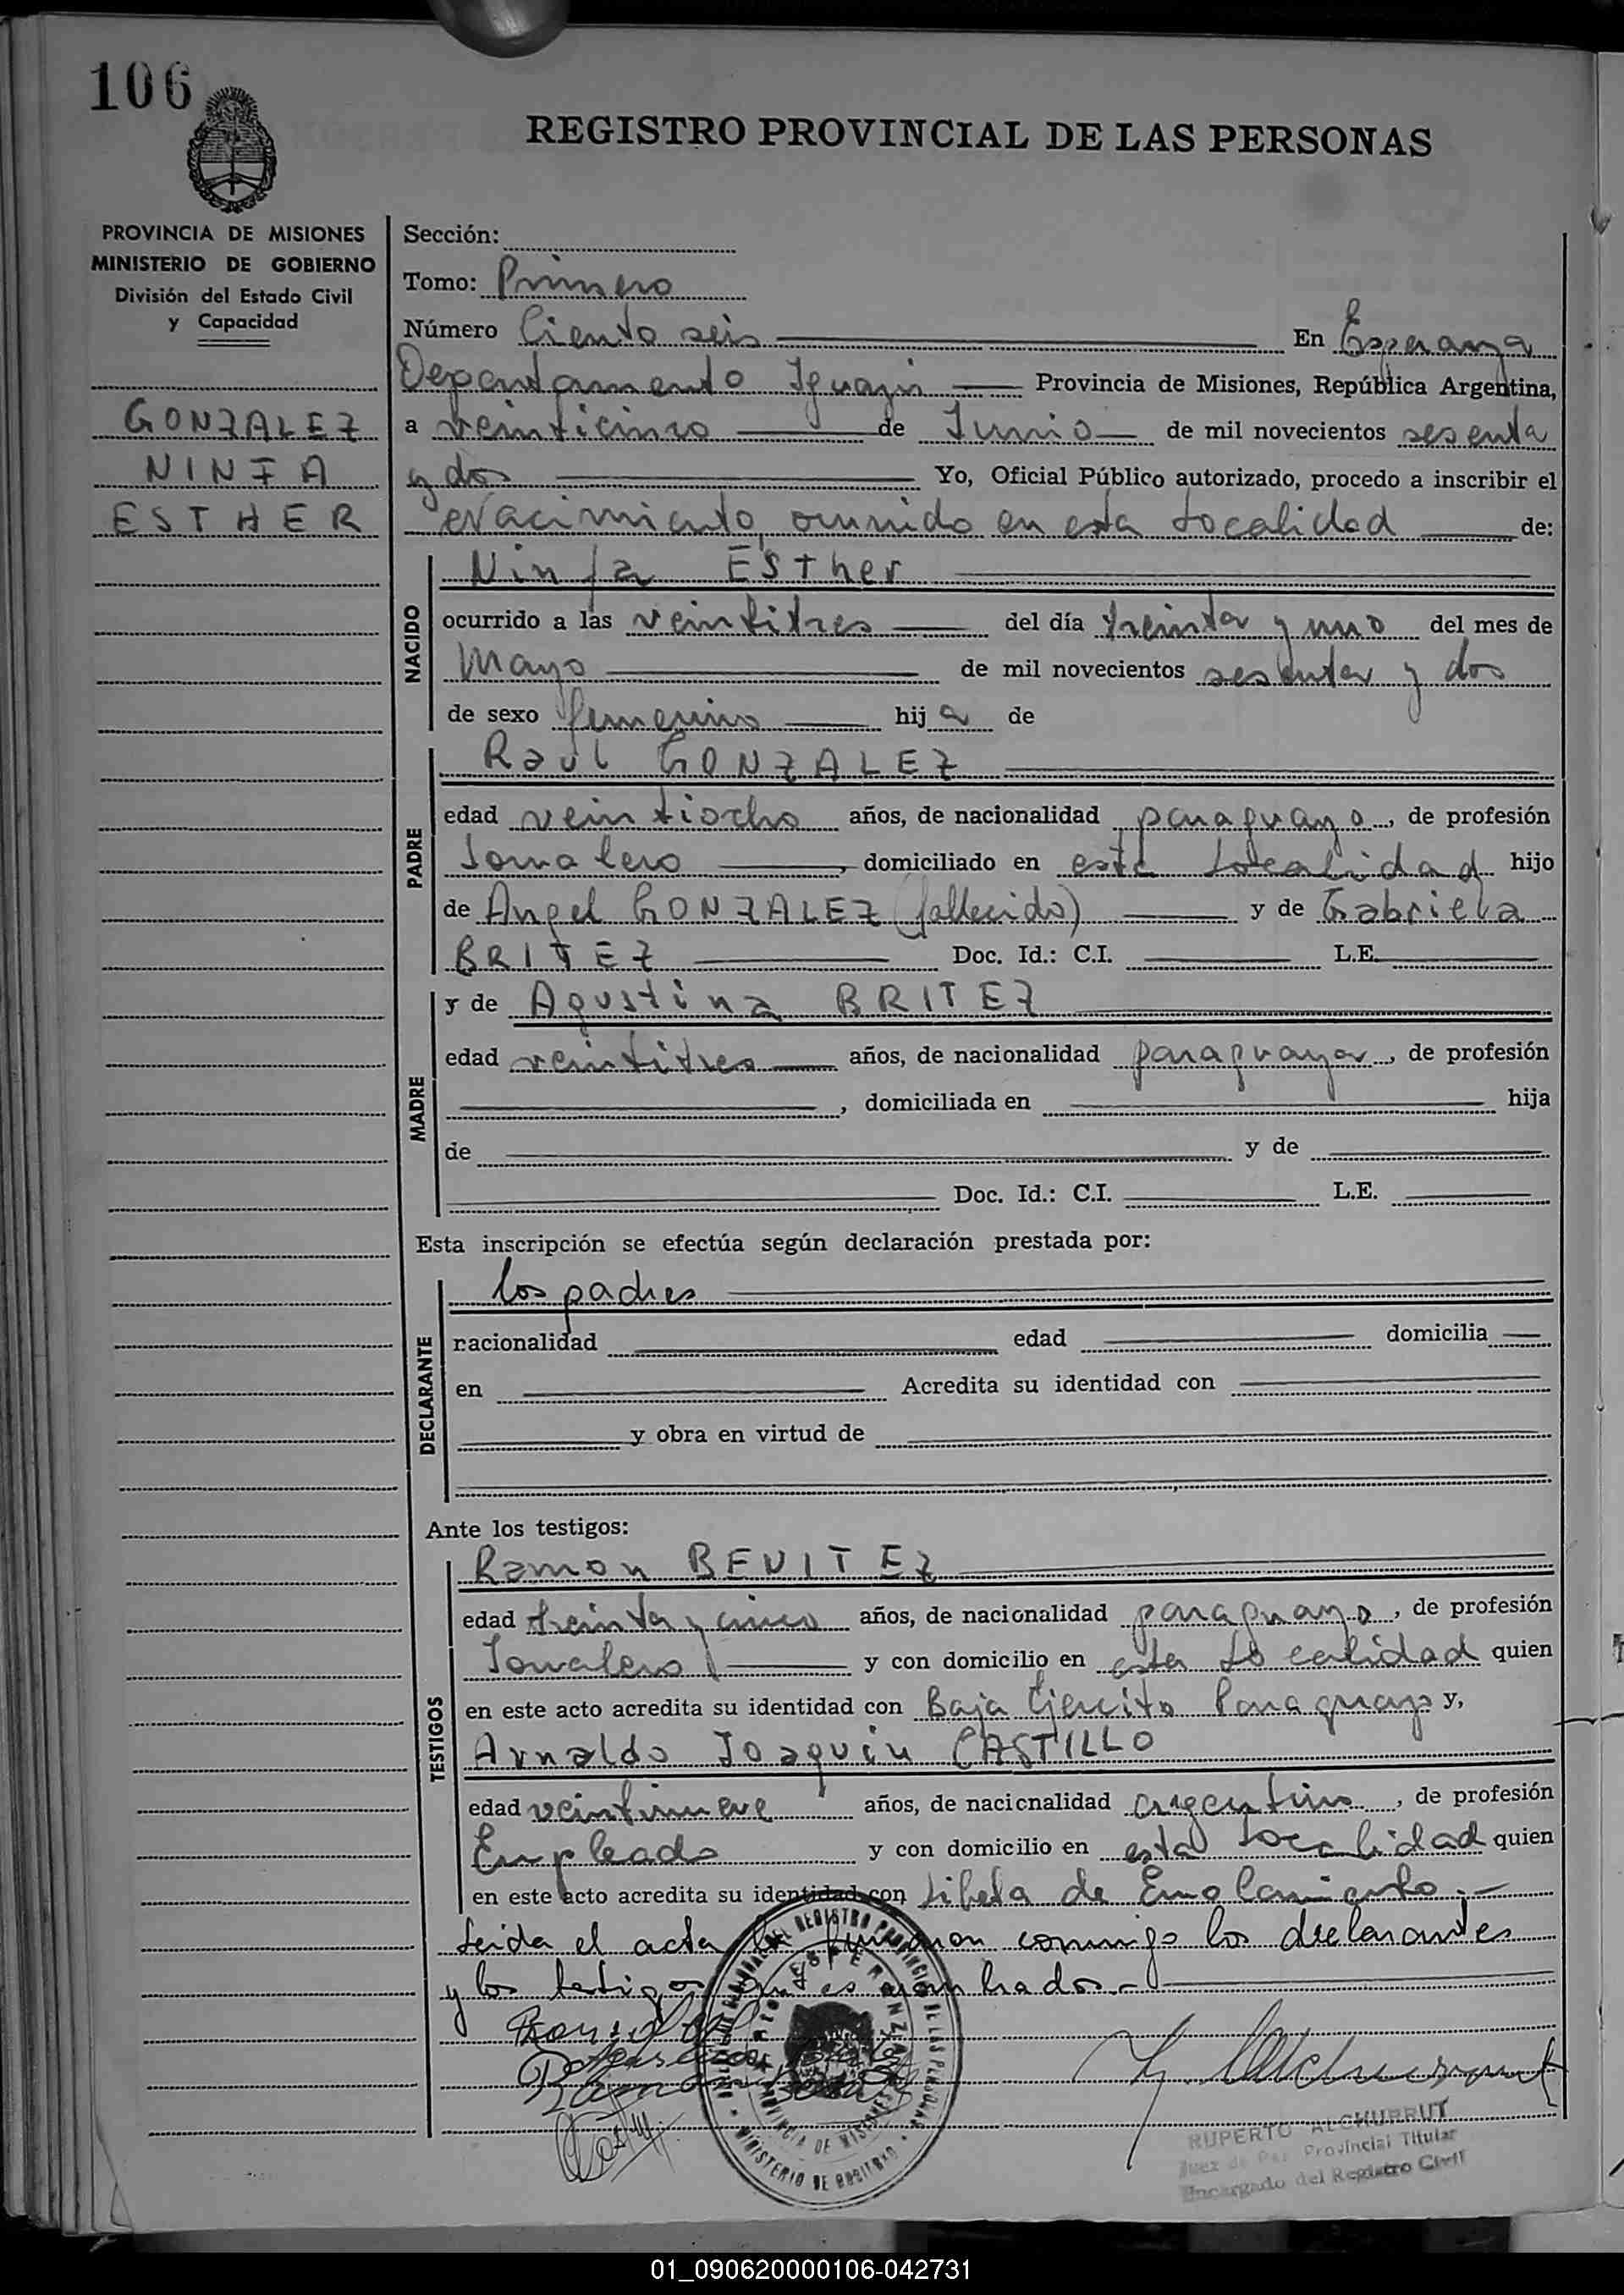 106
REGISTRO PROVINCIAL DE LAS PERSONAS
PROVINCIA DE MISIONES
MINISTERIO DE GOBIERNO
División del Estado Civil
y Capacidad
GONZALEZ
NINFA
ESTHER
Sección:
Tomo: Primero
Número Ciento seis En Esperanza
Departamento Iguazú Provincia de Misiones, República Argentina,
a veinticinco de Junio de mil novecientos sesenta
y dos Yo, Oficial Público autorizado, procedo a inscribir el
Nacimiento ocurrido en esta Localidad de:
NACIDO
Ninfa Esther
ocurrido a las veintitres del día treinta y uno del mes de
Mayo de mil novecientos sesenta y dos
de sexo femenino hija de
PADRE
Raul GONZALEZ
edad veintiocho años, de nacionalidad paraguayo, de profesión
Jornalero, domiciliado en esta Localidad hijo
de Angel GONZALEZ (fallecido) y de Gabriela
BRITEZ Doc. Id.: C.I. L.E.
MADRE
y de Agustina BRITEZ
edad veintitres años, de nacionalidad paraguaya, de profesión
, domiciliada en hija
de y de
Doc. Id.: C.I. L.E.
Esta inscripción se efectúa según declaración prestada por:
DECLARANTE
los padres
nacionalidad edad domicilia
en Acredita su identidad con
y obra en virtud de
Ante los testigos:
TESTIGOS
Ramon BENITEZ
edad treinta y cinco años, de nacionalidad paraguayo, de profesión
Jornalero y con domicilio en esta Localidad quien
en este acto acredita su identidad con Baja Ejercito Paraguayo y,
Arnaldo Joaquin CASTILLO
edad veintinueve años, de nacionalidad argentino, de profesión
Empleado y con domicilio en esta Localidad quien
en este acto acredita su identidad con Libreta de Enrolamiento.-
Leida el acta la firmaron conmigo los declarantes
y los testigos nombrados.-
REGISTRO PROVINCIAL DE LAS PERSONAS
ESPERANZA
PROVINCIA DE MISIONES
MINISTERIO DE GOBIERNO
RUPERTO ALCHURRUT
Juez de Paz Provincial Titular
Encargado del Registro Civil
01_090620000106-042731